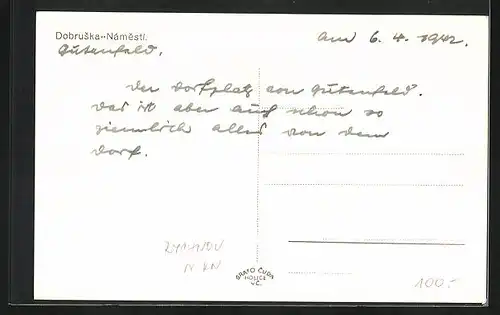 Dobruška-Náměstí.
Gutenfeld.
am 6. 4. 1942.
Der Dorfplatz von Gutenfeld.
Das ist aber auch schon so
ziemlich alles von dem
Dorf.
GRAFO ČUDA
HOLICE
V.Č.
100.-